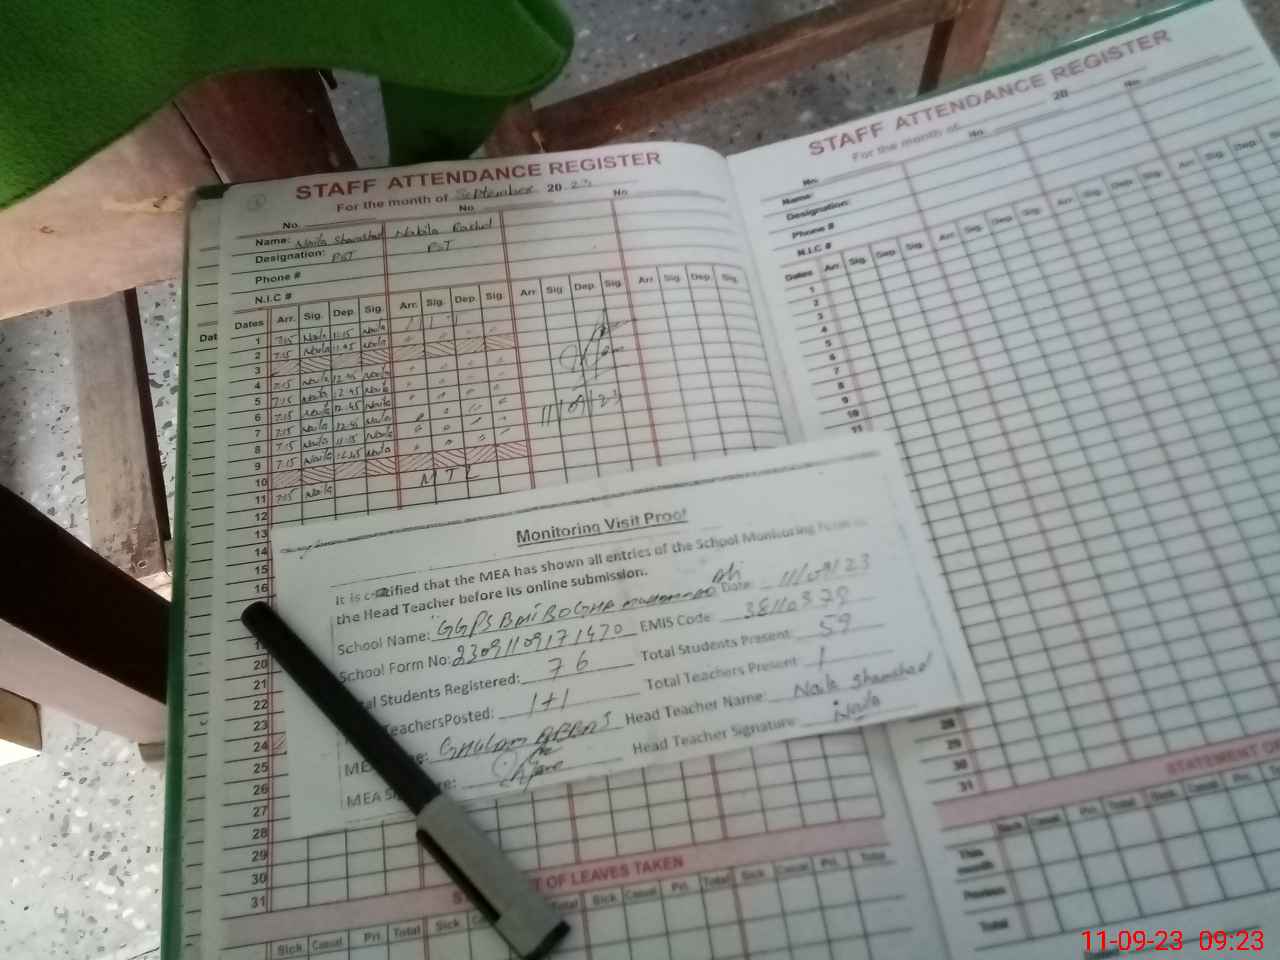 STAFF ATTENDANCE REGISTER
For the month of September 20 23
No. No. No.
Name: Naila Shamshad Nabila Rashid
Designation: PST PST
Phone #
N.I.C #
Dates Arr. Sig. Dep. Sig. Arr. Sig. Dep. Sig. Arr. Sig. Dep. Sig. Arr. Sig. Dep. Sig.
1 7:15 Naila 11:15 Naila
2 7:15 Naila Naila
3
4 7:15 Naila 12:45 Naila
5 7:15 Naila 12:45 Naila
6 7:15 Naila 12:45 Naila
7 7:15 Naila 12:45 Naila
8 7:15 Naila 11:15 Naila
9 7:15 Naila 12:45 Naila
10
11 7:15 Naila
11/09/23
12
13
14
15
16
20
21
22
23
24
25
26
27
28
29
30
31
Monitoring Visit Proof
It is certified that the MEA has shown all entries of the School Monitoring Form
the Head Teacher before its online submission.
School Name: GGPS Date: 11/09/23
School Form No: 23091109171470 EMIS Code: 38110378
Total Students Registered: 76 Total Students Present: 59
Teachers Posted: 1+1 Total Teachers Present: 1
GHULAM ABBAS Head Teacher Name: Naila Shamshad
MEA Head Teacher Signature: Naila
OF LEAVES TAKEN
Sick Casual Pri. Total Sick Total Sick Casual Pri. Total Sick Casual Pri. Total
STAFF ATTENDANCE REGISTER
For the month of 20
No. No. No.
Name:
Designation:
Phone #
N.I.C #
Dates Arr. Sig. Dep. Sig. Arr. Sig. Dep. Sig. Arr. Sig. Dep. Sig. Arr. Sig. Dep.
1
2
3
4
5
6
7
8
9
10
11
28
29
30
31
STATEMENT O
Sick Casual Pri. Total Sick Casual Pri. Total
This month
Previous
Total
11-09-23 09:23